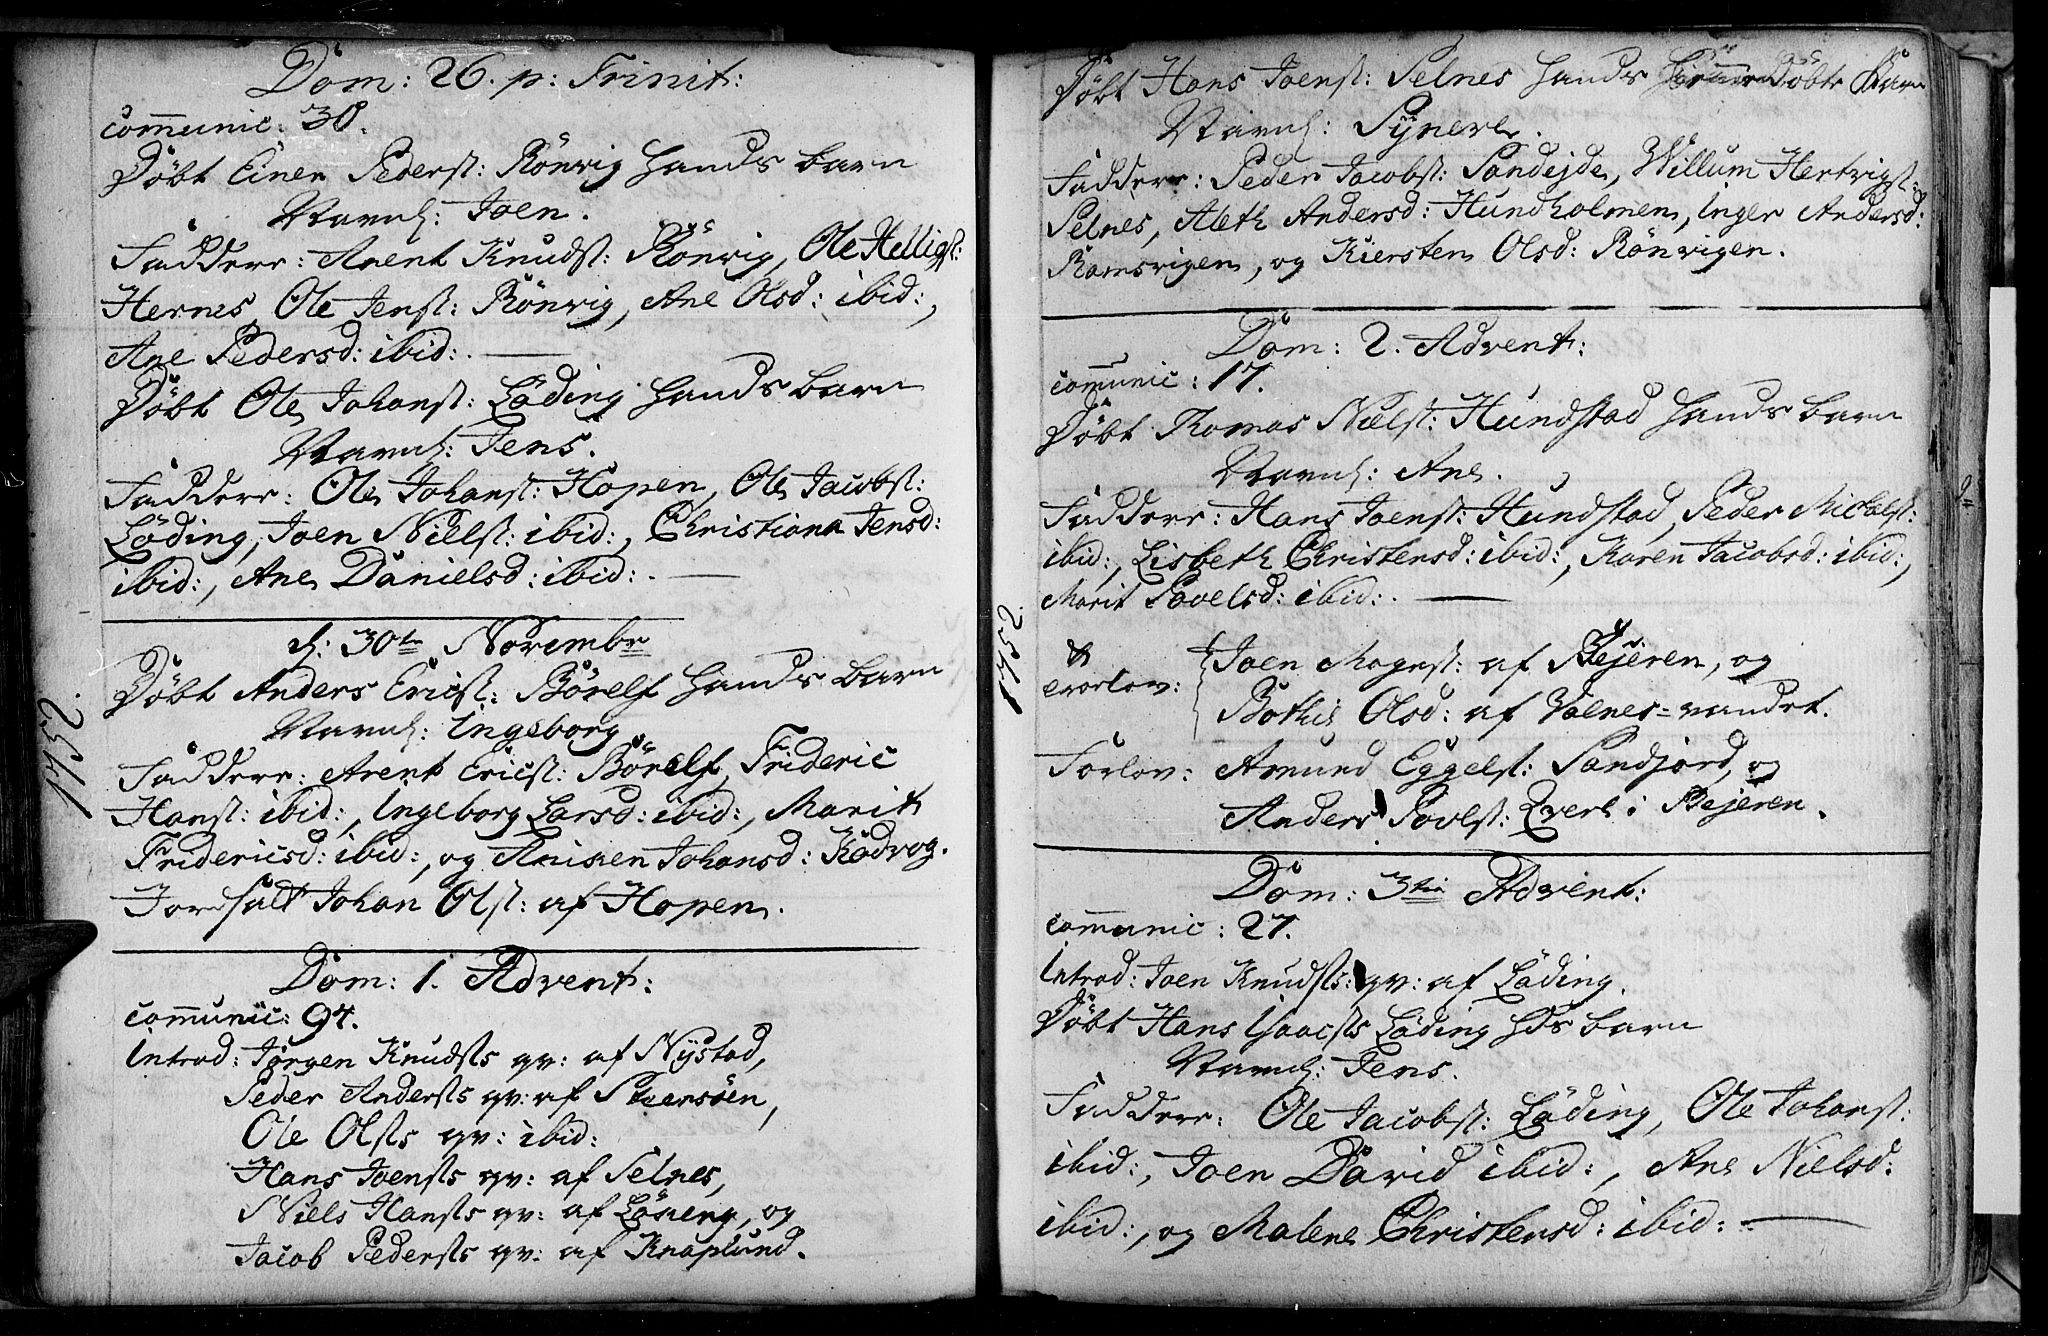 Dom: 26. p: Trinit:
communic: 30.
Döbt Einer Pederss: Rönvig Hands barn
Navnl: Joen.
Faddere: Arent Knudss: Rönvig, Ole Helligss:
Hernes, Ole Jenss: Rönvig, Ane Olsd: ibid:,
Ane Pedersd: ibid:.
Döbt Ole Johanss: Löding Hands barn
Navnl: Jens.
Faddere: Ole Johanss: Hopen, Ole Jacobss:
Löding, Joen Nielss: ibid:, Christiana Jensd:
ibid:, Ane Danielsd: ibid:.
d: 30te Novembr
Döbt Anders Ericss: Börelf Hands barn
Navnl: Ingeborg
Faddere: Arent Ericss: Börelf, Frideric
Hanss: ibid:, Ingeborg Larsd: ibid:, Marit
Fridericsd: ibid:, og Aniken Johansd: Kodvog.
Jordfæst Johan Olss: af Hopen.
1752.
Dom: 1. Advent:
communic: 94.
Introd: Jørgen Knudsts qv: af Nystad,
Peder Anderssts qv: af
Ole Olssts qv: ibid:
Hans Joenssts qv: af Selnes,
Niels Hanssts qv: af Löding, og
Jacob Pederssts qv: af Knaplund.
Döbt Hans Joenss: Selnes Hands Döbte Barn
Navnl: Synere.
Faddere: Peder Jacobss: Sandejde, Willum Hertvigss:
Selnes, Aleth Andersd: Hundholmen, Inger Andersd:
Ramsvigen, og Kiersten Olsd: Rönvigen.
Dom: 2. Advent:
comunic: 17.
Döbt Thomas Nielss: Hundstad Hands barn
Navnl: Ane.
Faddere: Hans Joenss: Hundstad, Peder Michelss:
ibid:, Lisbeth Christensd: ibid:, Karen Jacobsd: ibid:,
Marit Povelsd: ibid:.
1752
Trorlov: Joen Mogenss: af Bejeren, og
Bothil Olsd: af Valnes=vandet.
Forlov: Amund Eggelss: Sandjord, og
Anders Povlss: Qverl i Bejeren.
Dom: 3tia Advent:
communic: 27.
Introd: Joen Knudssts: qv: af Löding.
Döbt Hans Isaacssts Löding Hds barn
Navnl: Jens.
Faddere: Ole Jacobss: Löding, Ole Johanss:
ibid:, Joen David ibid:, Ane Nielsd:
ibid:, og Malene Christensd: ibid:.